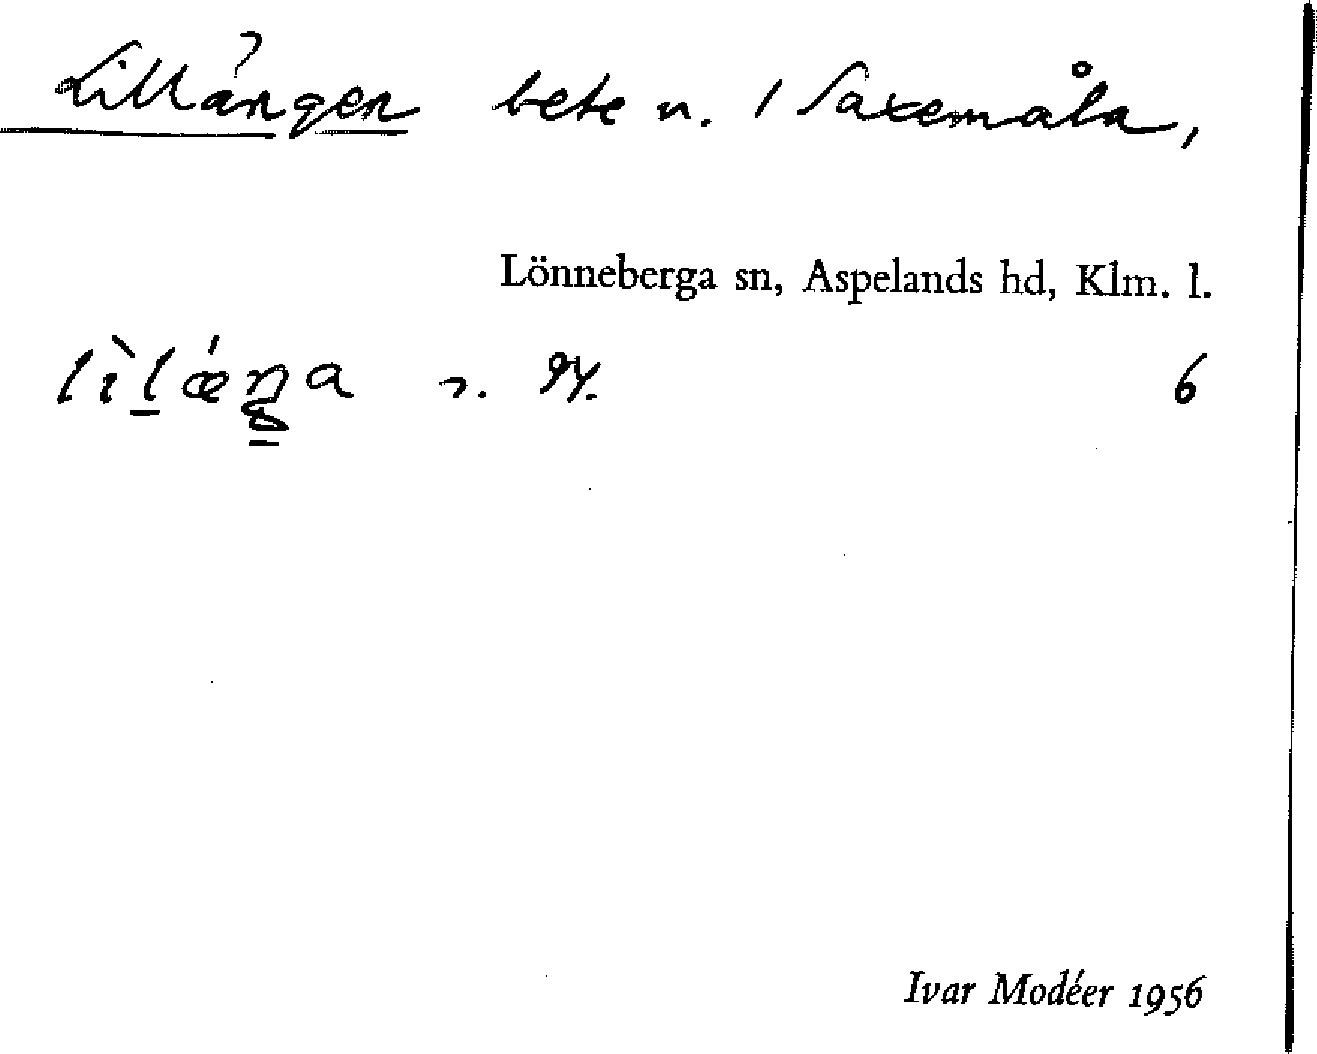 Lillängen bete n. / Saxemåla,
Lönneberga sn, Aspelands hd, Klm. l.
lìlǽŋa 6
Ivar Modéer 1956